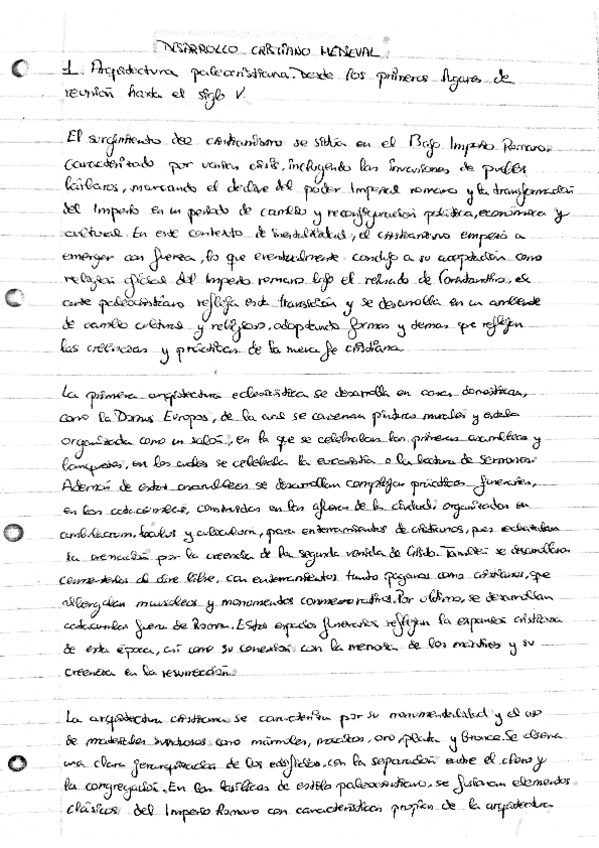 DESARROLLO CRISTIANO MEDIEVAL
1. Arquitectura paleocristiana. Desde los primeros lugares de
reunión hasta el siglo V.
El surgimiento del cristianismo se sitúa en el Bajo Imperio Romano,
caracterizado por varias crisis, incluyendo las invasiones de pueblos
bárbaros, marcando el declive del poder Imperial romano y la transformación
del Imperio en un periodo de cambio y reconfiguración política, económica y
cultural. En este contexto de inestabilidad, el cristianismo empezó a
emerger con fuerza, lo que eventualmente condujo a su aceptación como
religión oficial del Imperio romano bajo el reinado de Constantino, el
arte paleocristiano refleja esta transición y se desarrolla en un ambiente
de cambio cultural y religioso, adoptando formas y temas que reflejan
las creencias y prácticas de la nueva fe cristiana.
La primera arquitectura eclesiástica se desarrolla en casas domésticas,
como la Domus Europos, de la cual se conservan pinturas murales y estaba
organizada como un salón, en la que se celebraban las primeras asambleas y
banquetes, en los cuales se celebraba la eucaristía o la lectura de sermones.
Además de estas asambleas se desarrollan complejas prácticas funerarias,
en las catacumbas, construidas en las afueras de la ciudad, organizadas en
ambulacrum, loculus y cubiculum, para enterramientos de cristianos, pues
la cremación por la creencia de la segunda venida de Cristo. También se desarrollan
cementerios al aire libre, con enterramientos tanto paganos como cristianos, que
albergaban mausoleos y monumentos conmemorativos. Por último, se desarrollan
catacumbas fuera de Roma. Estos espacios funerarios reflejan la expansión cristiana
de esta época, así como su conexión con la memoria de los mártires y su
creencia en la resurrección.
La arquitectura cristiana se caracteriza por su monumentalidad y el uso
de materiales suntuosos como mármoles, mosaicos, oro, plata y bronce. Se observa
una clara jerarquización de los edificios, con la separación entre el clero y
la congregación. En las basílicas de estilo paleocristiano, se fusionan elementos
clásicos del Imperio Romano con características propias de la arquitectura